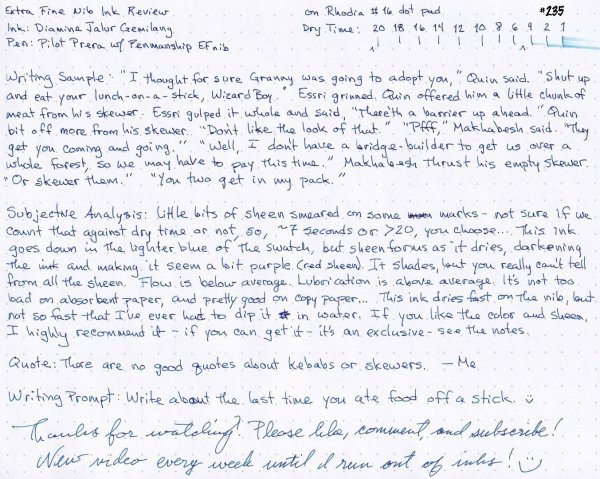 Extra Fine Nib Ink Review on Rhodia #16 dot pad #235
Ink: Diamine Jalur Gemilang Dry Time: 20 18 16 14 12 10 8 6 4 2 1
Pen: Pilot Prera w/ Penmanship EF nib
Writing Sample: "I thought for sure Granny was going to adopt you," Quin said. "Shut up
and eat your lunch-on-a-stick, Wizard Boy." Essri grinned. Quin offered him a little chunk of
meat from his skewer. Essri gulped it whole and said, "There'th a barrier up ahead." Quin
bit off more from his skewer. "Don't like the look of that." "Pfff," Makhabesh said. "They
get you coming and going." "Well, I don't have a bridge-builder to get us over a
whole forest, so we may have to pay this time." Makhabesh thrust his empty skewer.
"Or skewer them." "You two get in my pack."
Subjective Analysis: Little bits of sheen smeared on some marks - not sure if we
count that against dry time or not, so, ~7 seconds or >20, you choose... This ink
goes down in the lighter blue of the swatch, but sheen forms as it dries, darkening
the ink and making it seem a bit purple (red sheen). It shades, but you really can't tell
from all the sheen. Flow is below average. Lubrication is above average. It's not too
bad on absorbent paper, and pretty good on copy paper... This ink dries fast on the nib, but
not so fast that I've ever had to dip it in water. If you like the color and sheen,
I highly recommend it - if you can get it - it's an exclusive - see the notes.
Quote: There are no good quotes about kebabs or skewers. — Me
Writing Prompt: Write about the last time you ate food off a stick.
Thanks for watching! Please like, comment, and subscribe!
New video every week until I run out of inks!